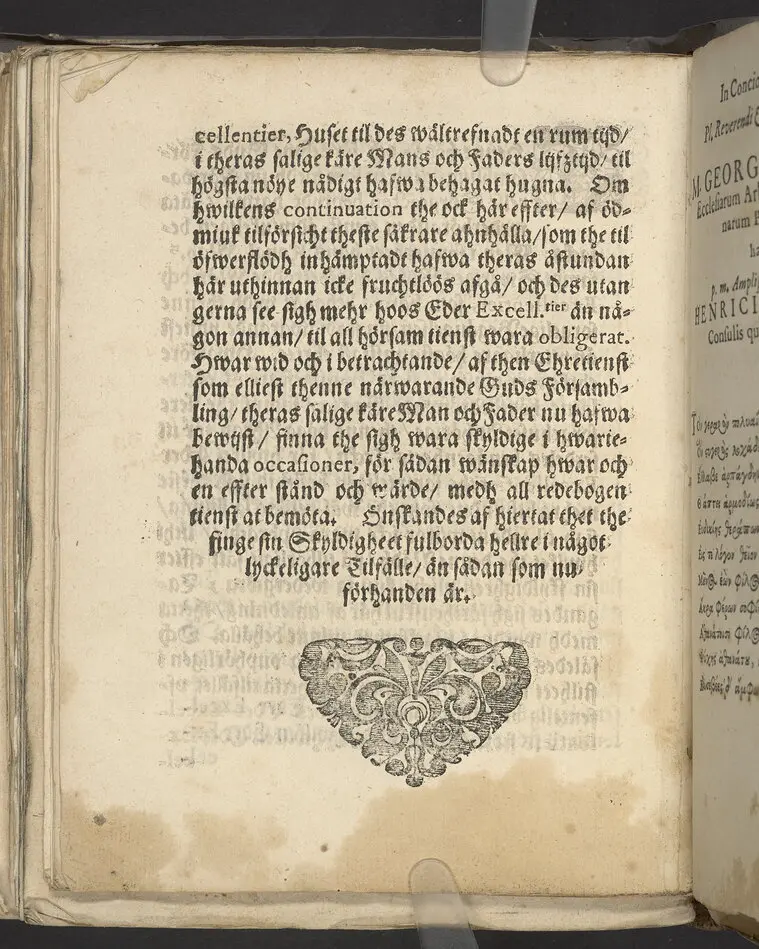 cellentier, Huset til des wältrefnadt en rum tijd/
i theras salige käre Mans och Faders lijfztijd/ til
högsta nöye nådigt hafwa behagat hugna. Om
hwilkens continuation the ock här effter/ af öd-
miuk tilförsicht theste säkrare ahnhålla/ som the til
öfwerflödh inhämptadt hafwa theras åstundan
här uthinnan icke fruchtlöös afgå/ och des utan
gerna see sigh mehr hoos Eder Excell.tier än nå-
gon annan/ til all hörsam tienst wara obligerat.
Hwar wid och i betrachtande/ af then Ehretienst
som elliest thenne närwarande Guds Församb-
ling/ theras salige käre Man och Fader nu hafwa
bewijst/ finna the sigh wara skyldige i hwarie-
handa occasioner, för sådan wänskap hwar och
en effter stånd och wärde/ medh all redebogen
tienst at bemöta. Önskandes af hiertat thet the
finge sin Skyldigheet fulborda hellre i något
lyckeligare Tilfälle/ än sådan som nu
förhanden är.
In Concio
Pl. Reverendi
M. GEORG
Ecclesiarum Ar
narum P
ha
p. m. Ampli
HENRICI
Consulis qu